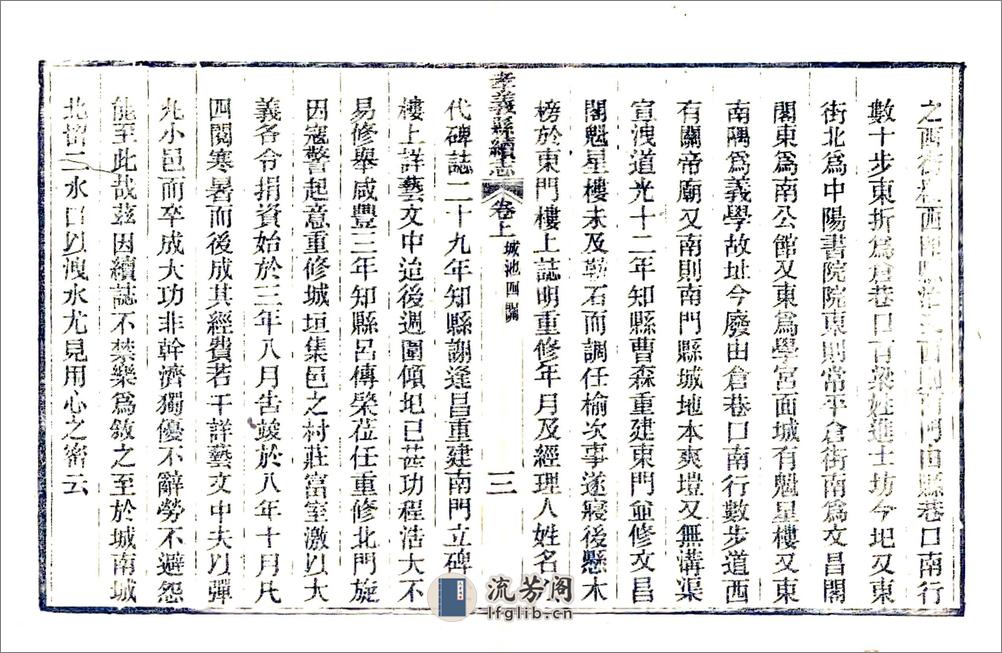 之西街在西
數十步東折爲倉巷口有梁姓進士坊今圯又東
街北爲中陽書院院東則常平倉街南爲文昌閣
閣東爲南公館又東爲學宮面城有魁星樓又東
南隅爲義學故址今廢由倉巷口南行數步道西
有關帝廟又南則南門縣城地本爽塏又無溝渠
宣洩道光十二年知縣曹森重建東門並修文昌
閣魁星樓未及勒石而調任榆次事遂寢後懸木
榜於東門樓上誌明重修年月及經理人姓名
孝義縣續志 卷上 城池四關 三
代碑誌二十九年知縣謝逢昌重建南門立碑
樓上詳藝文中迨後週圍傾圯已甚功程浩大不
易修舉咸豐三年知縣呂傳棨莅任重修北門旋
因寇警起意重修城垣集邑之村莊富室激以大
義各令捐資始於三年八月告竣於八年十月凡
四閱寒暑而後成其經費若干詳藝文中夫以彈
丸小邑而卒成大功非幹濟獨優不辭勞不避怨
能至此哉茲因續誌不禁樂爲敘之至於城南城
北留二水口以洩水尤見用心之密云
流芳阁
lfglib.cn